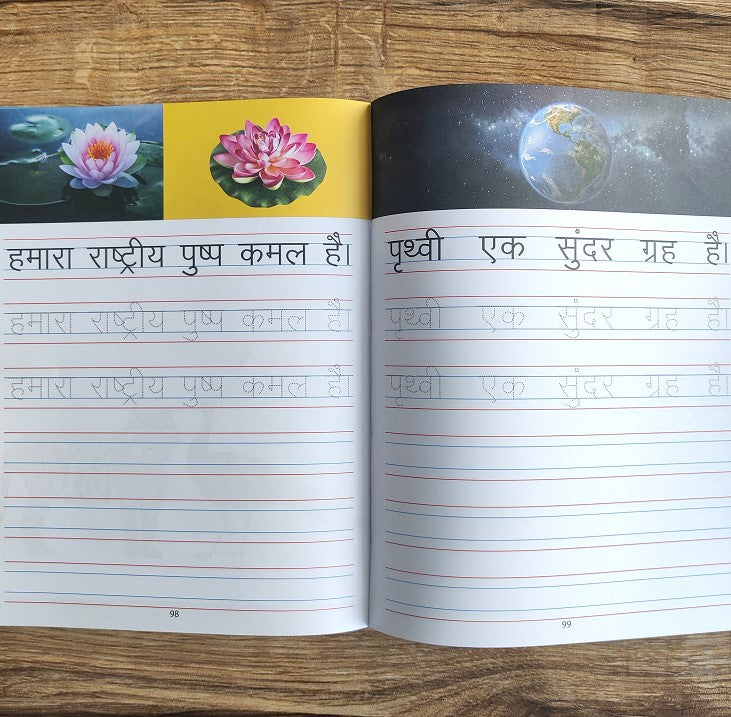 हमारा राष्ट्रीय पुष्प कमल है।
हमारा राष्ट्रीय पुष्प कमल है।
हमारा राष्ट्रीय पुष्प कमल है।
98
पृथ्वी एक सुंदर ग्रह है।
पृथ्वी एक सुंदर ग्रह है।
पृथ्वी एक सुंदर ग्रह है।
99